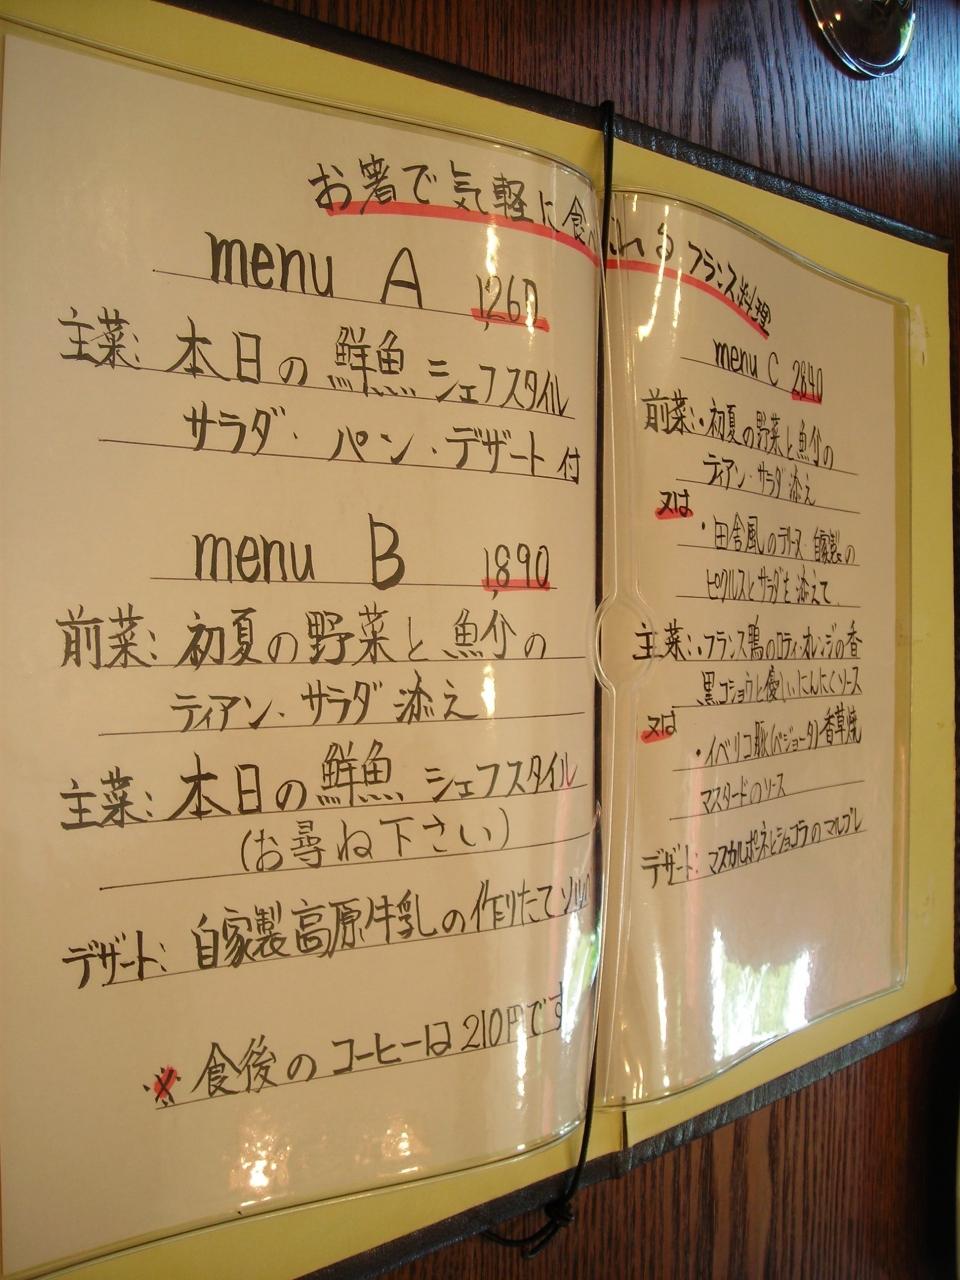 お箸で気軽に食べられるフランス料理
menu A 1,260
主菜: 本日の鮮魚 シェフスタイル
サラダ・パン・デザート付
menu B 1,890
前菜: 初夏の野菜と魚介の
ティアン・サラダ添え
主菜: 本日の鮮魚 シェフスタイル
(お尋ね下さい)
デザート: 自家製高原牛乳の作りたて
※ 食後のコーヒーは210円です
menu C 2840
前菜:・初夏の野菜と魚介の
ティアン・サラダ添え
又は
・田舎風のテリーヌ 自家製の
ピクルスとサラダを添えて
主菜:・フランス鴨のロティ・オレンジの香
黒コショウと優しいにんにくソース
又は
・イベリコ豚(ベジョータ)香草焼
マスタードのソース
デザート: マスカルポーネとショコラのマルブレ